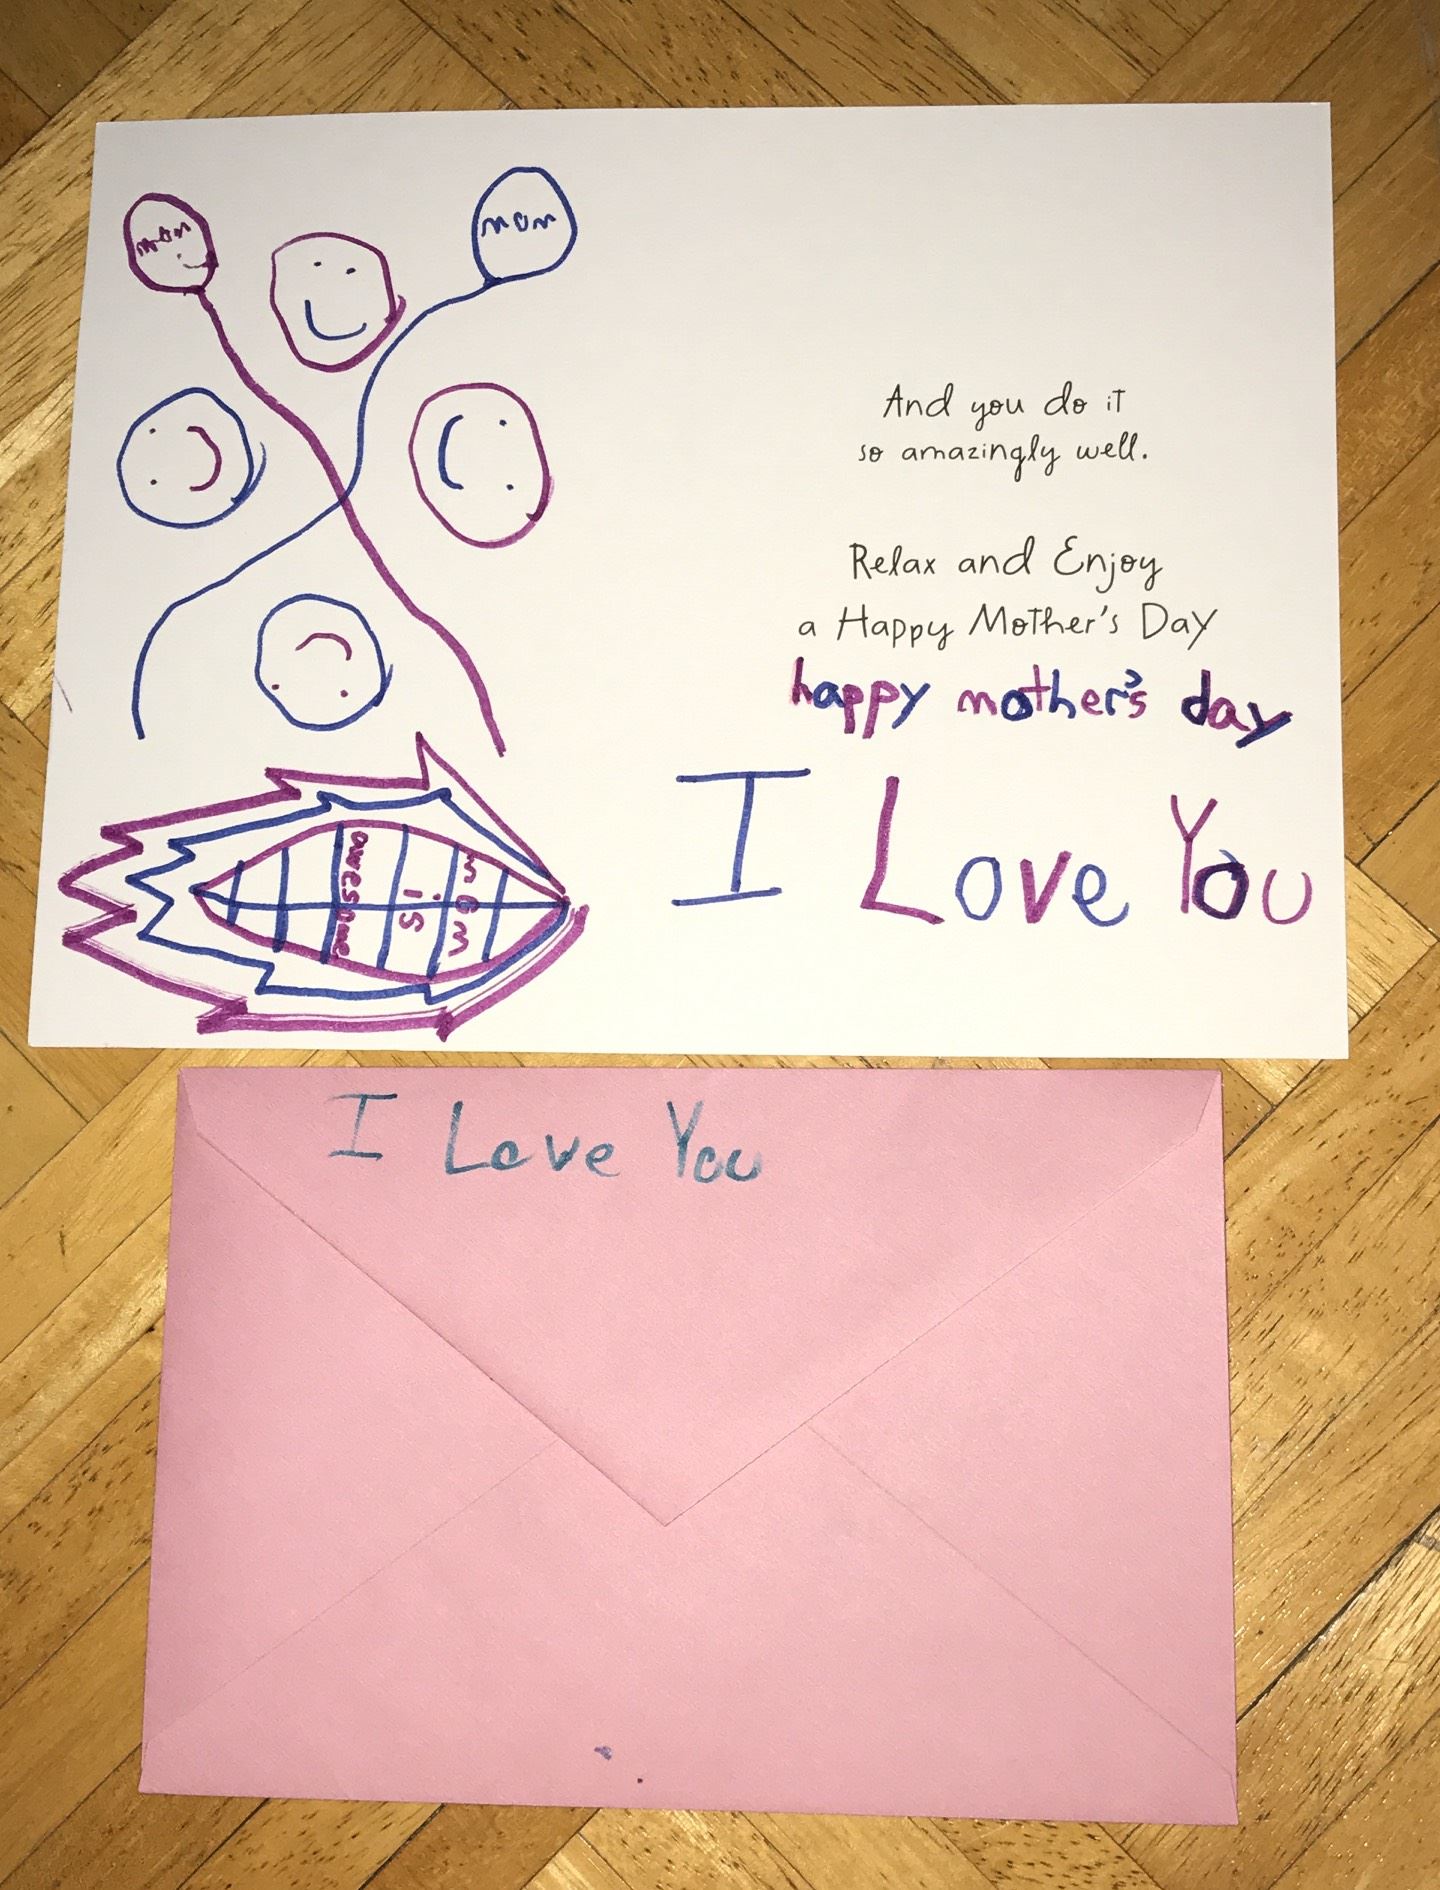 mom
mom
mom
is
awesome
And you do it
so amazingly well.
Relax and Enjoy
a Happy Mother's Day
happy mother's day
I Love You
I Love You